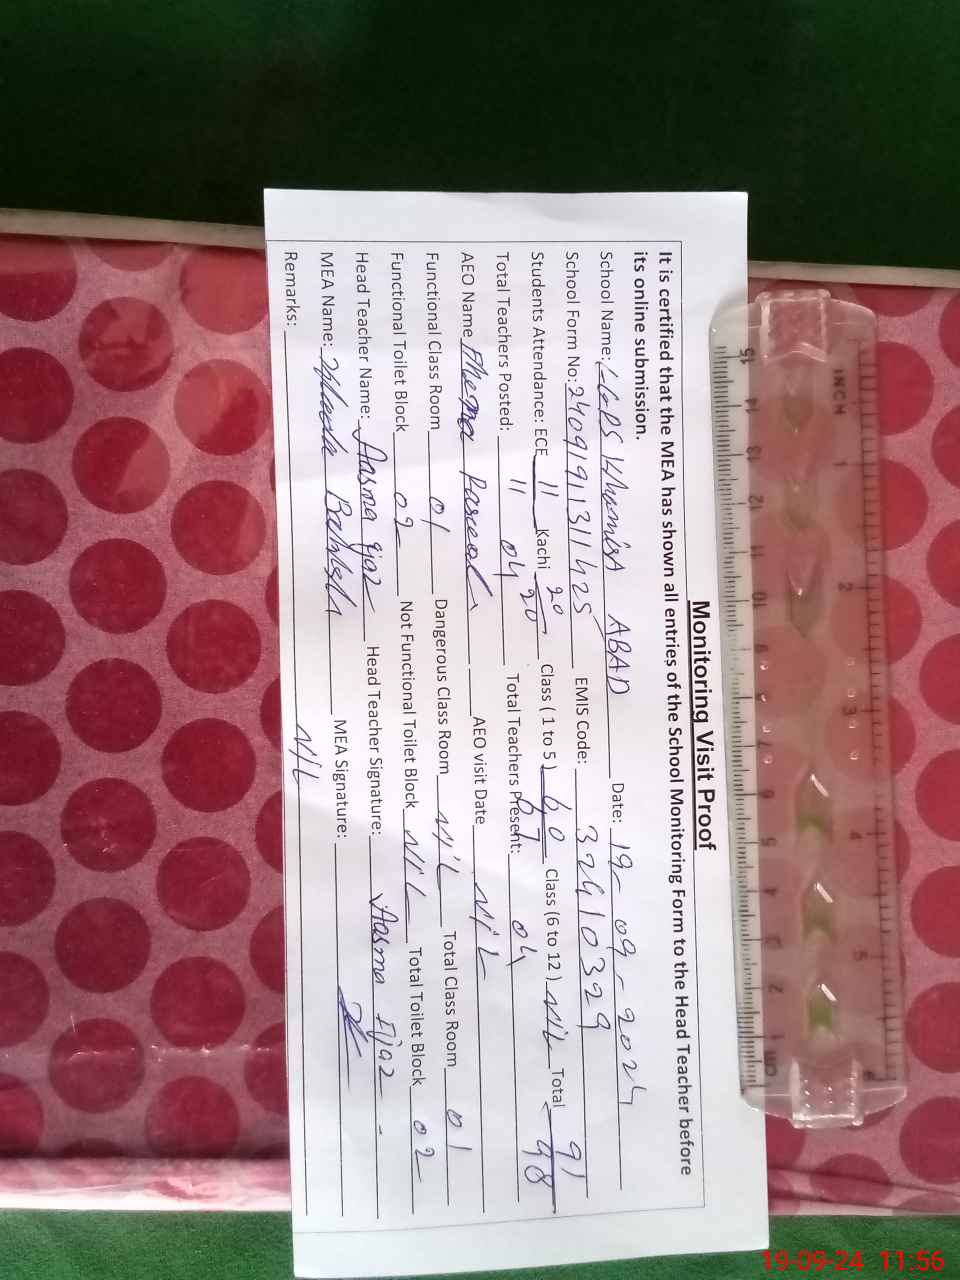 Monitoring Visit Proof
It is certified that the MEA has shown all entries of the School Monitoring Form to the Head Teacher before
its online submission.
School Name: GGPS ABAD Date: 19-09-2024
School Form No: 2409191311425 EMIS Code: 32410329
Students Attendance: ECE 11/11 Kachi 20/20 Class ( 1 to 5 ) 60/67 Class (6 to 12 ) NiL Total 91/98
Total Teachers Posted: 04 Total Teachers Present: 04
AEO Name AEO visit Date NiL
Functional Class Room 01 Dangerous Class Room NiL Total Class Room 01
Functional Toilet Block 02 Not Functional Toilet Block NiL Total Toilet Block 02
Head Teacher Name: Aasma Ijaz Head Teacher Signature: Aasma Ijaz
MEA Name: MEA Signature:
Remarks: NiL
INCH
1 2 3 4 5 6
15 14 13 12 11 10 9 8 7 6 5 4 3 2 1 cm
19-09-24 11:56